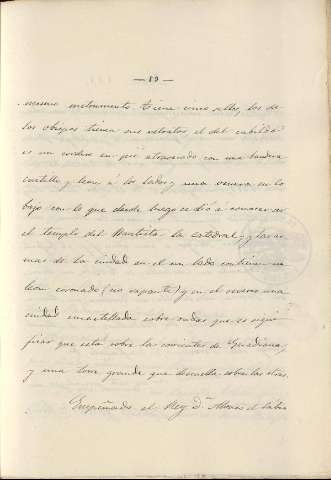 — 80 —
mismo instrumento tiene cinco sellos, los de
los obispos tienen sus retratos el del cabildo
es un cordero en pié atravesado con una bandera
castillo y leon á los lados y una venera en lo
bajo con lo que desde luego se dió á conocer ser
el templo del Bautista la catedral, y las ar
mas de la ciudad en el un lado contienen un
leon coronado (no rapante) y en el reverso una
ciudad encastillada sobre ondas que es signi
ficar que está sobre la corriente de Guadiana,
y una torre grande que descuella sobre las otras.
Empeñado el Rey Dⁿ Alonso el Sabio